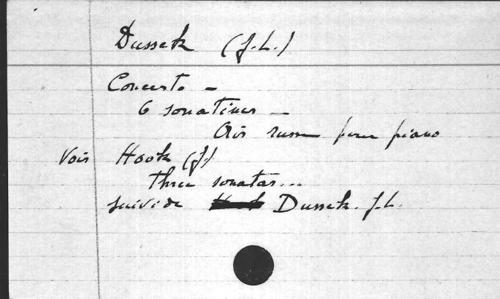 Dussek (J.L.)
Concerto –
6 sonatines –
Air russe pour piano
Voir Hook (J)
Three sonatas...
suivi de Dussek. J.L.